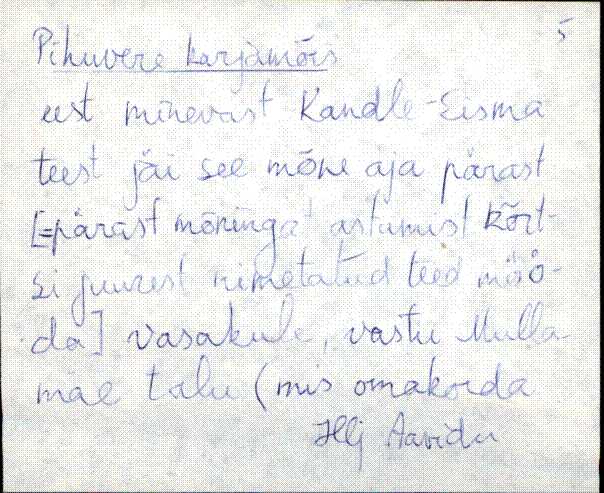 5
Pihuvere karjamõis
eest minevast Kandle-Eisma
teest jäi see mõne aja pärast
[=pärast mõningat astumist kõrt-
si juurest nimetatud teed möö-
da] vasakule, vastu Mulla
mäe talu (mis omakorda
Hlj Aavidu